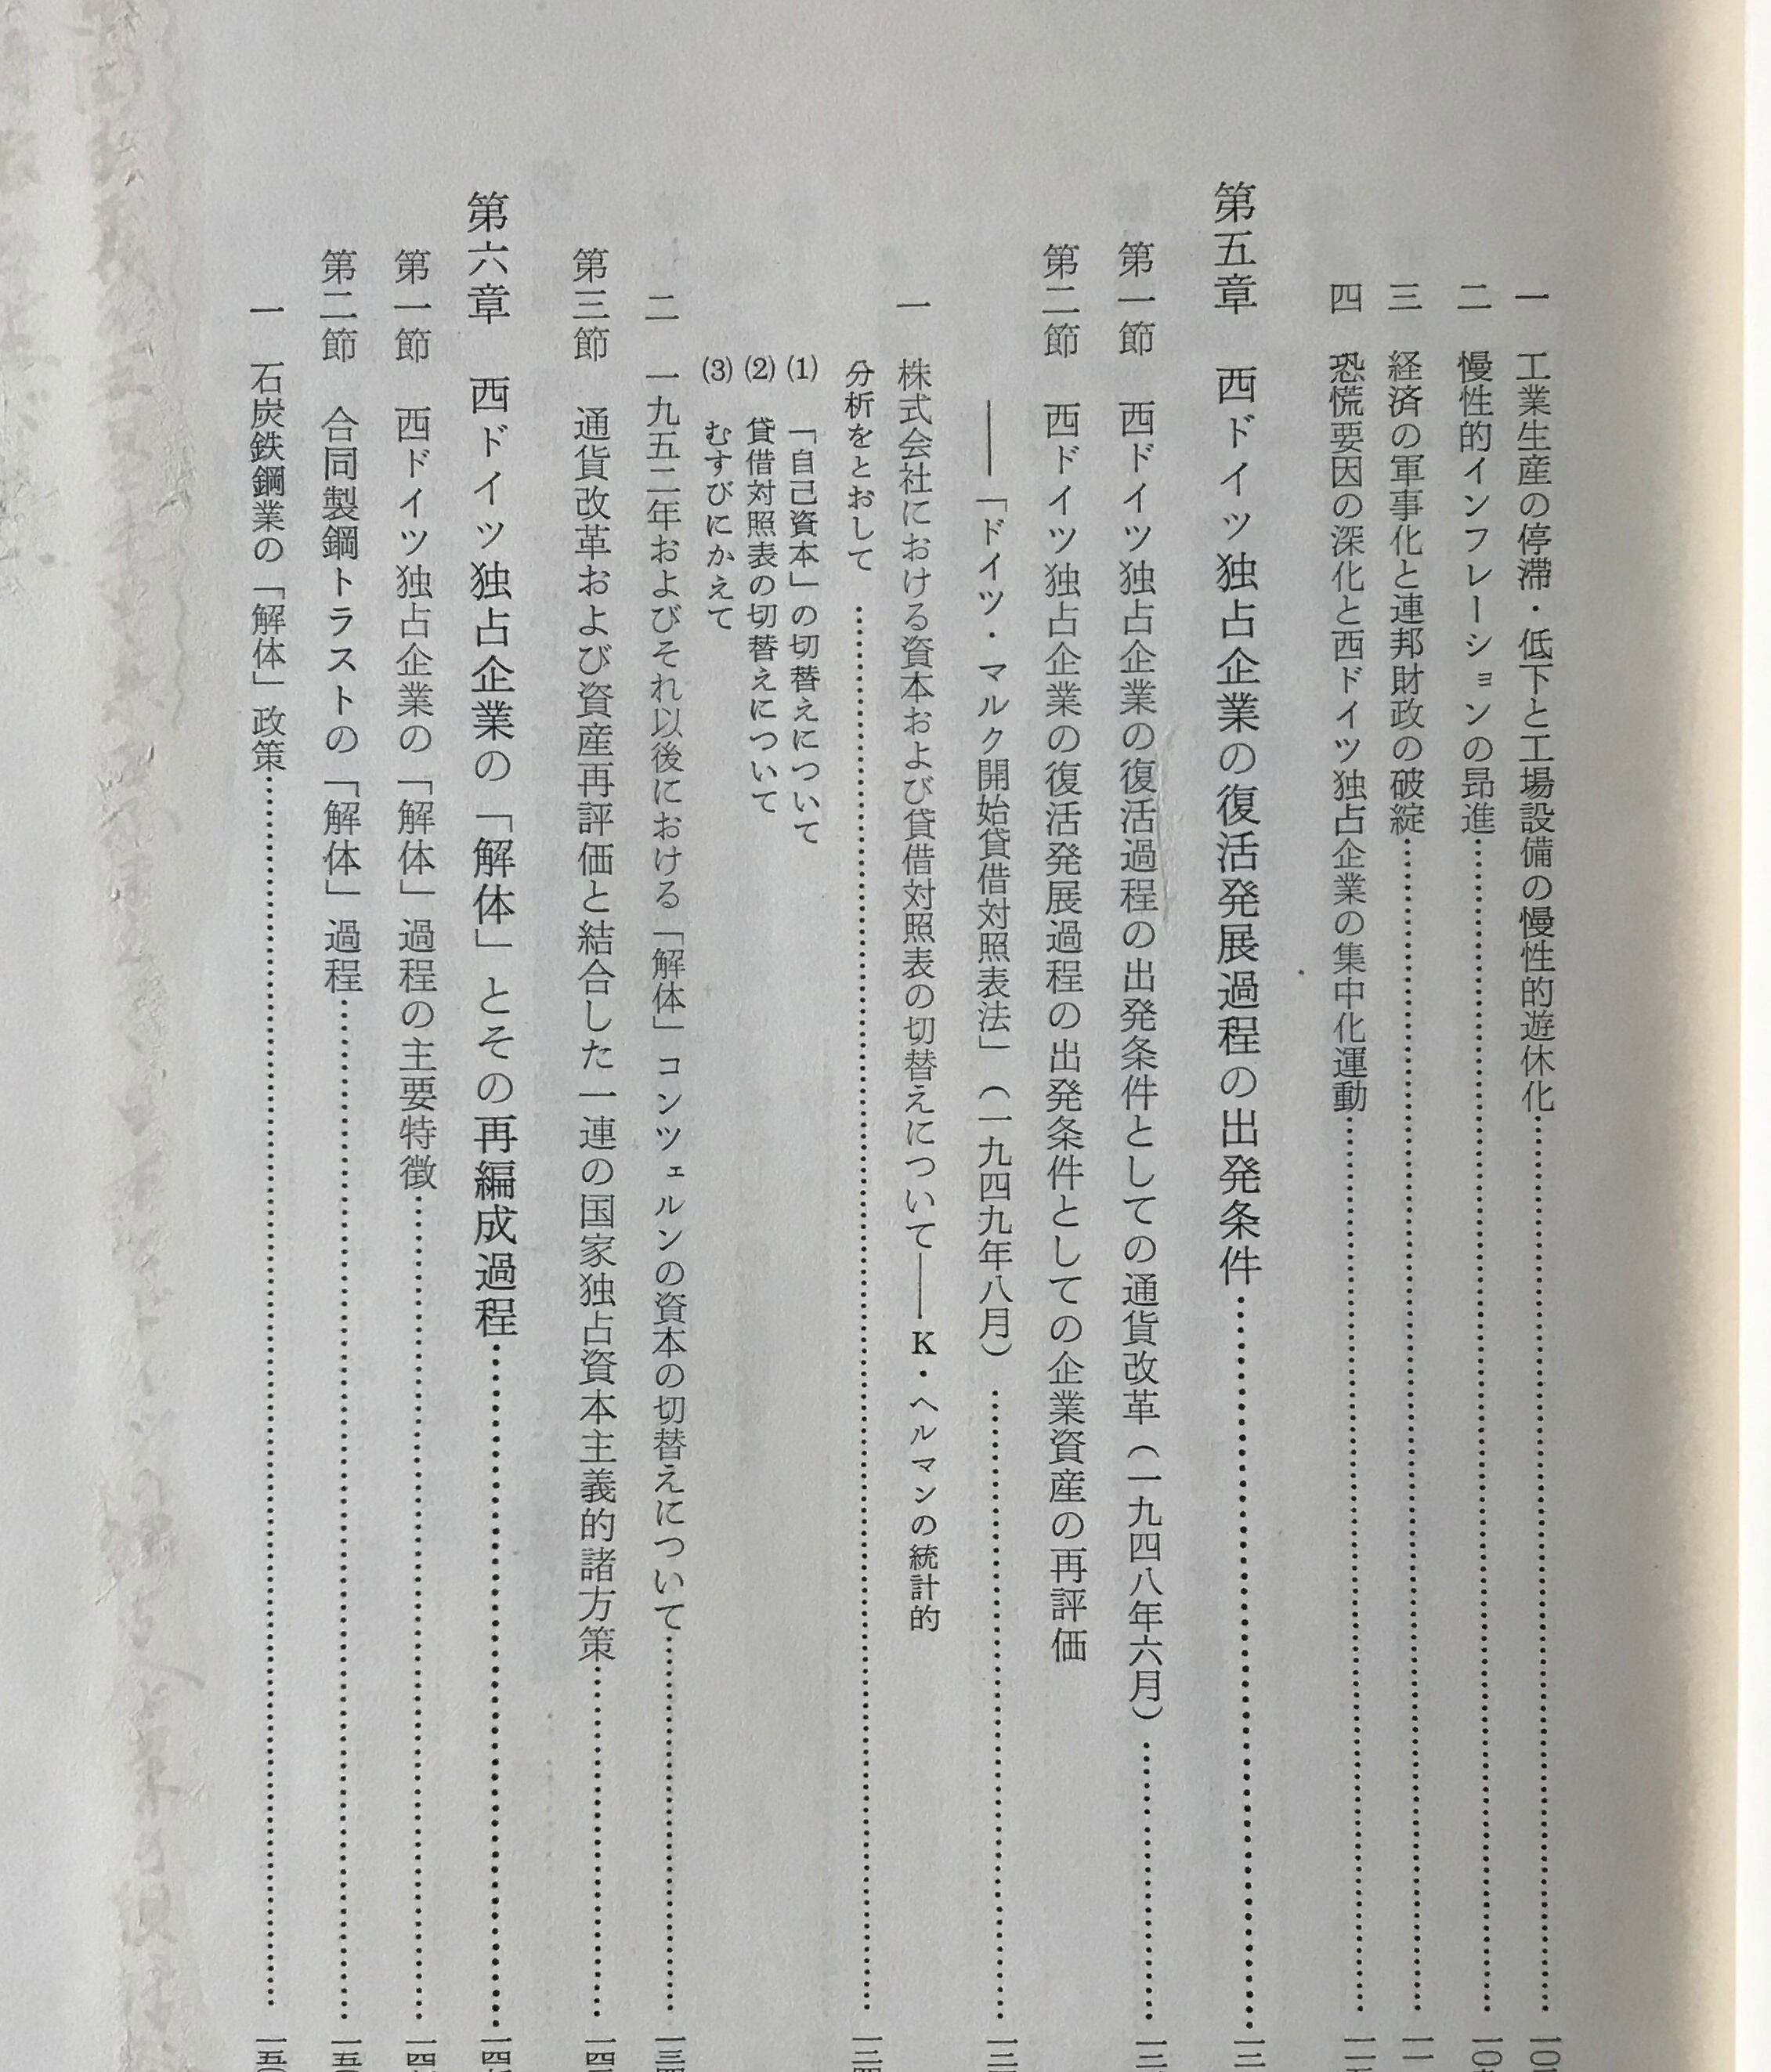 一 工業生産の停滞・低下と工場設備の慢性的遊休化
二 慢性的インフレーションの昂進
三 経済の軍事化と連邦財政の破綻
四 恐慌要因の深化と西ドイツ独占企業の集中化運動
第五章 西ドイツ独占企業の復活発展過程の出発条件
第一節 西ドイツ独占企業の復活過程の出発条件としての通貨改革（一九四八年六月）
第二節 西ドイツ独占企業の復活発展過程の出発条件としての企業資産の再評価
――「ドイツ・マルク開始貸借対照表法」（一九四九年八月）
一 株式会社における資本および貸借対照表の切替えについて――K・ヘルマンの統計的
分析をとおして
(1) 「自己資本」の切替えについて
(2) 貸借対照表の切替えについて
(3) むすびにかえて
二 一九五二年およびそれ以後における「解体」コンツェルンの資本の切替えについて
第三節 通貨改革および資産再評価と結合した一連の国家独占資本主義的諸方策
第六章 西ドイツ独占企業の「解体」とその再編成過程
第一節 西ドイツ独占企業の「解体」過程の主要特徴
第二節 合同製鋼トラストの「解体」過程
一 石炭鉄鋼業の「解体」政策